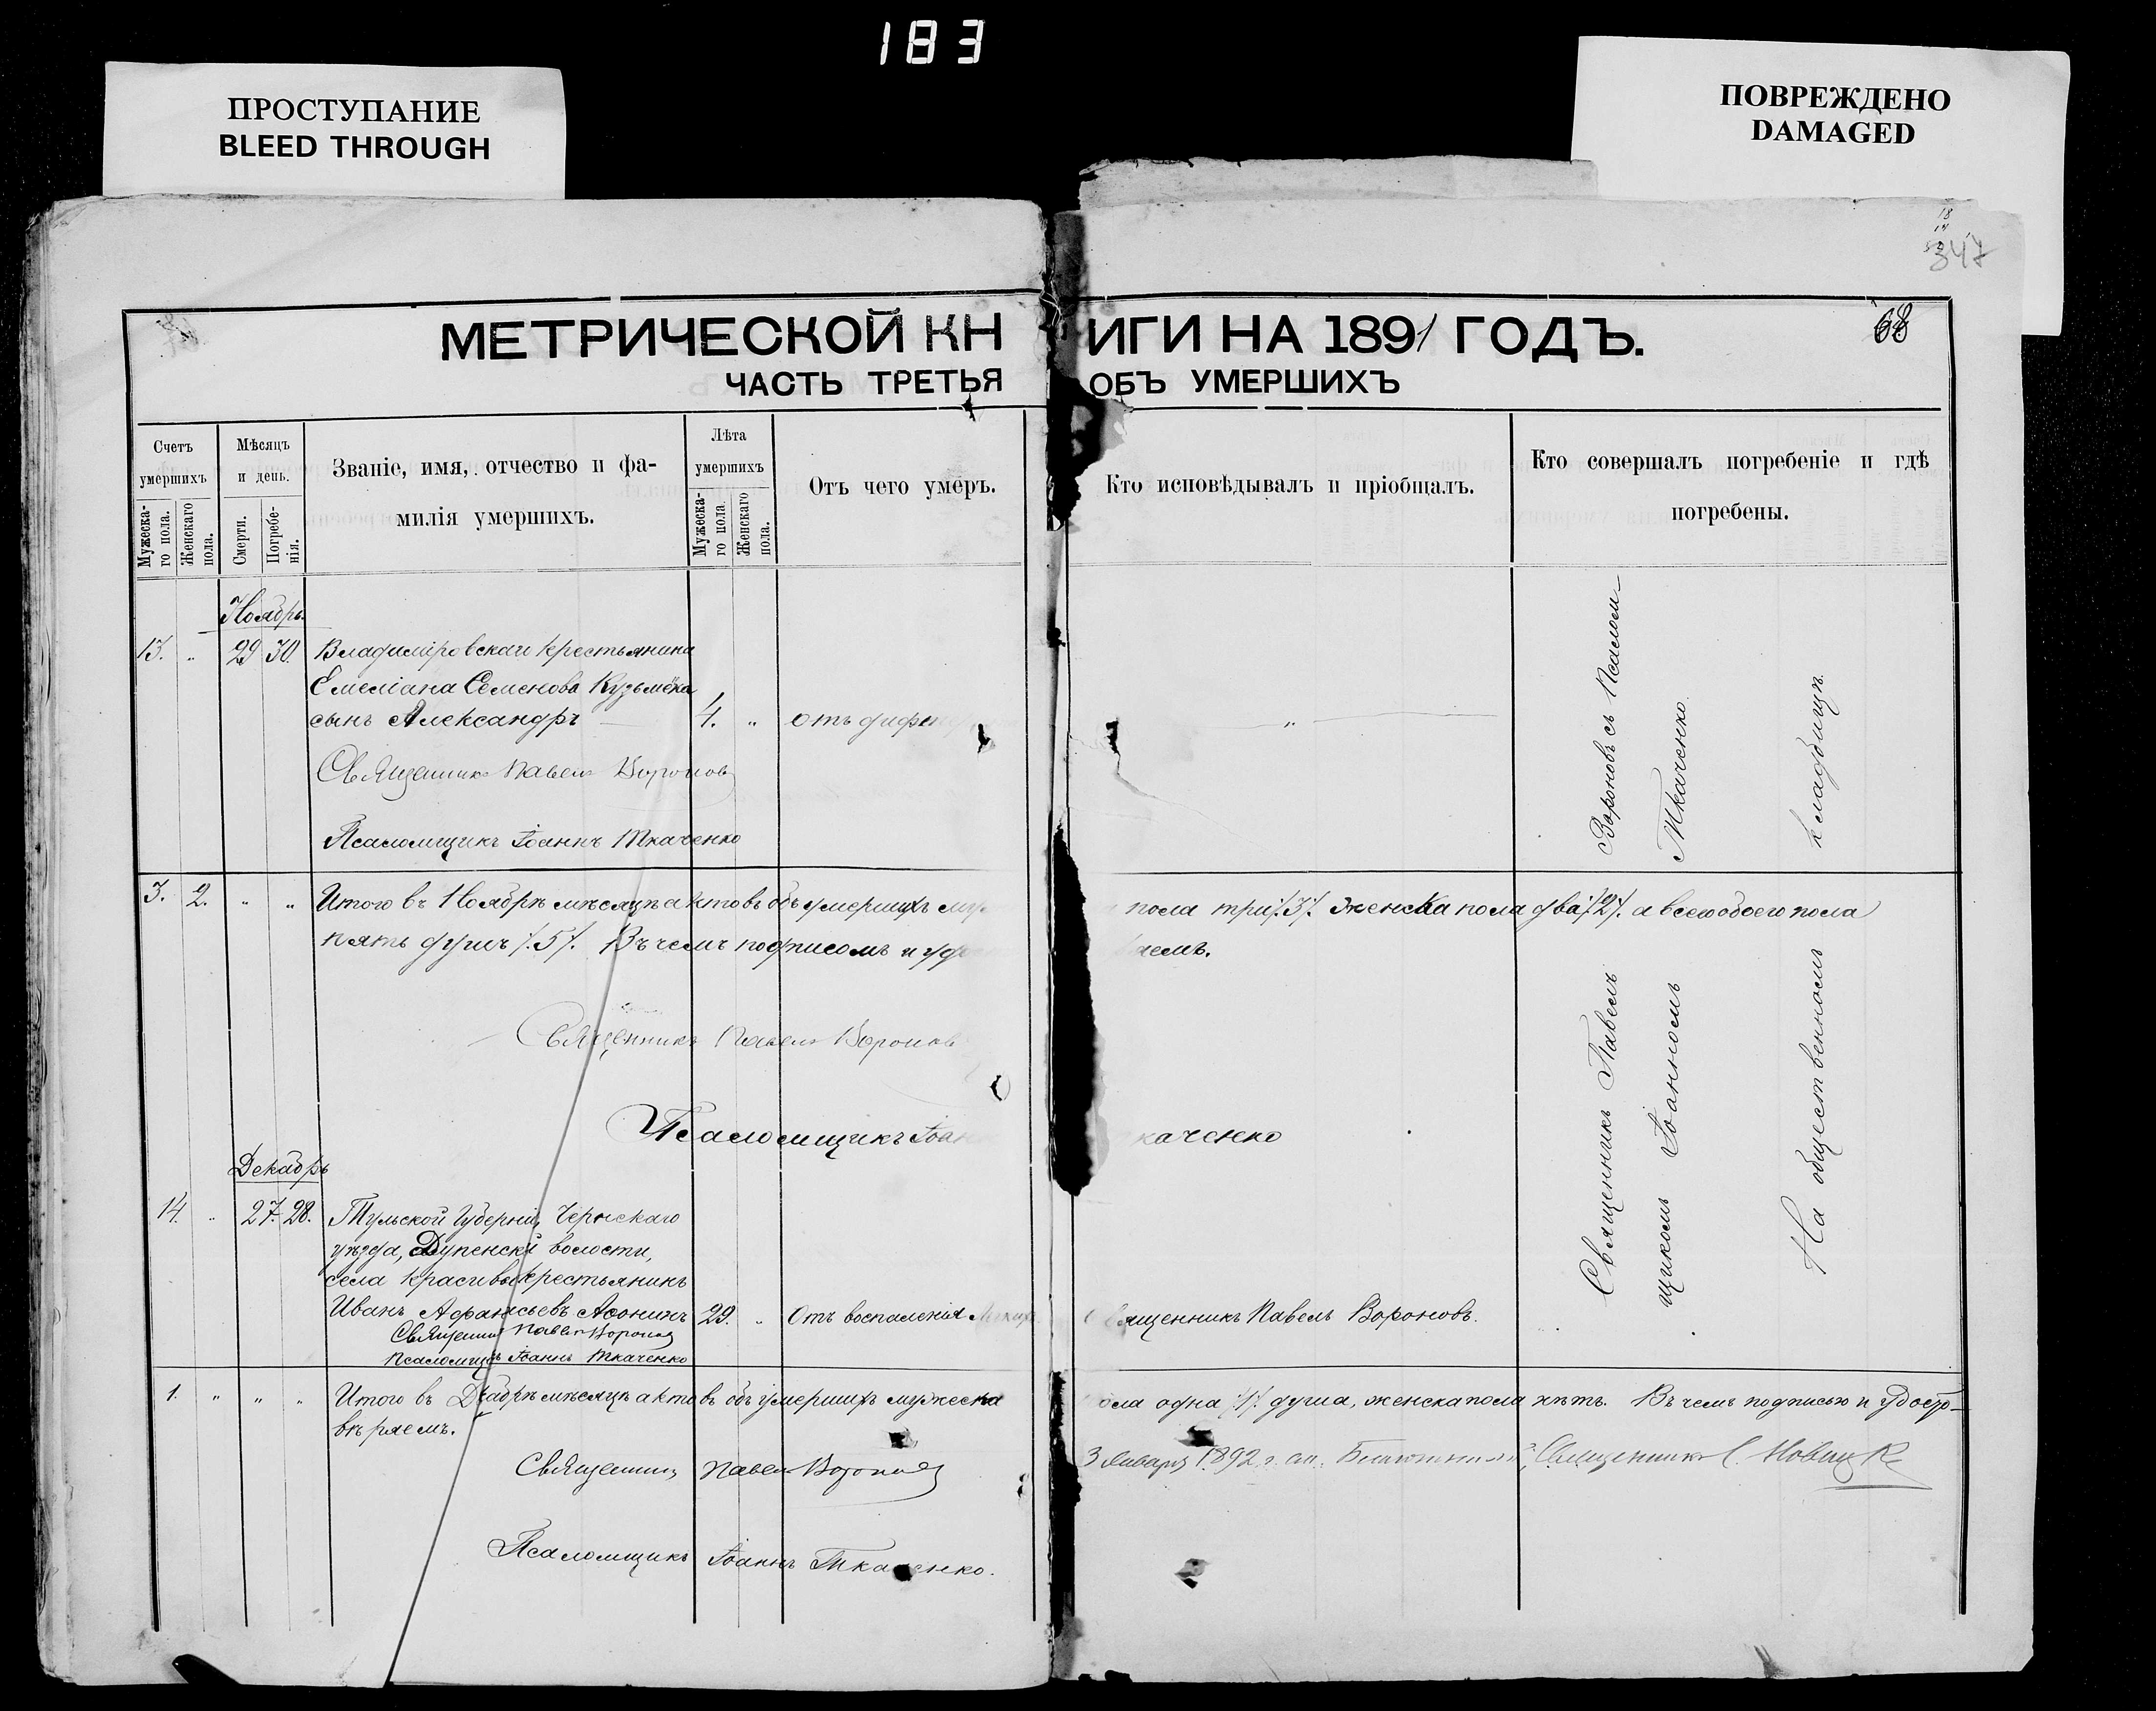 183
ПРОСТУПАНИЕ
BLEED THROUGH
ПОВРЕЖДЕНО
DAMAGED
347
68
МЕТРИЧЕСКОЙ КНИГИ НА 1891 ГОДЪ.
ЧАСТЬ ТРЕТЬЯ ОБЪ УМЕРШИХЪ
Счетъ умершихъ
Мужеска-го пола.
Женскаго пола.
Мѣсяцъ и день.
Смерти.
Погребе-нія.
Званіе, имя, отчество и фа-
милія умершихъ.
Лѣта умершихъ
Мужеска-го пола.
Женскаго пола.
Отъ чего умеръ.
Кто исповѣдывалъ и пріобщалъ.
Кто совершалъ погребеніе и гдѣ
погребены.
Ноябрь.
13. „ 29 30. Владиміровскаго крестьянина
Емеліана Семенова Кузьмёнка
сынъ Александръ 4. „ отъ дифте „
Священникъ Павелъ Вороновъ
Псаломщикъ Іоаннъ Ткаченко
3. 2. „ „ Итого въ Ноябрѣ мѣсяцѣ актовъ объ умершихъ пола три /.3/. женска пола два /.2/. а всего обоего пола
пять душъ /.5/. Въ чемъ подписомъ и аемъ.
Священникъ Павелъ Воронов
Псаломщикъ Іоан каченко
Декабрь
14. „ 27. 28. Тульской Губерніи, Чернскаго
уѣзда, Дупенскй волости,
села Красивы крестьянинъ
Иванъ Афанасьевъ Афонинъ 29. „ Отъ воспаленія Священникъ Павелъ Вороновъ.
Священникъ Павелъ Вороновъ
Псаломщикъ Іоаннъ Ткаченко
1. „ „ „ Итого въ Декабрѣ мѣсяцѣ актовъ объ умершихъ мужеска пола одна /1/. душа, женска пола нѣтъ. Въ чемъ подписью и удосто-
вѣряемъ.
Священникъ Павелъ Вороновъ
3 Января 1892 г. Священникъ
Псаломщикъ Іоаннъ Ткаченко.
Священникъ Павелъ Вороновъ съ Псалом-
щикомъ Іоанномъ Ткаченко
На общественномъ кладбищѣ.